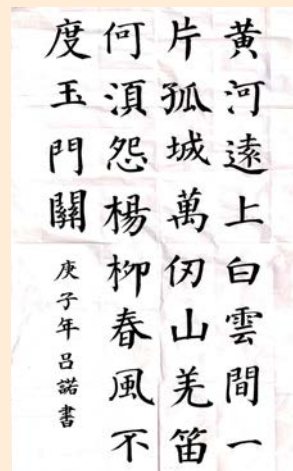 黃河遠上白雲間一
片孤城萬仞山羌笛
何須怨楊柳春風不
度玉門關
庚子年呂諾書